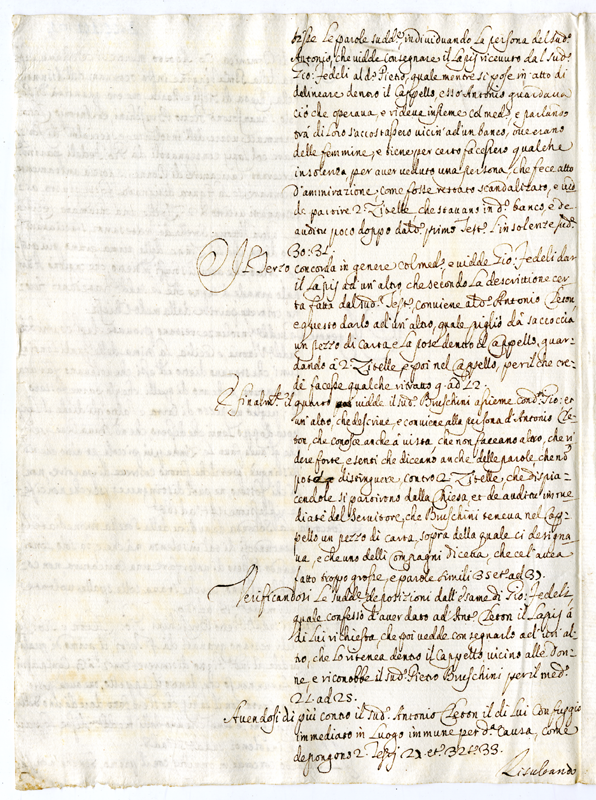 triste le parole sudd.e individuando la persona del sud.o
Antonio, che vidde consegnare il Lapis ricevuto dal sud.o
Gio: Fedeli al d.o Pietro, quale mentre si pose in atto di
delineare dentro il Cappello, esso Antonio guardava
ciò che operava, e rideva insieme col med.o e parlando
trà di loro s'accostassero vicin' ad un banco, ove erano
delle femmine, e tiene per certo facessero qualche
insolenza, per aver veduto una persona, che fece atto
d'ammirazione, come fosse restato scandalizato, e vid
de partire 2 Zitelle, che stavano in d.o banco, e de
auditu poco doppo dal d.o primo Test.o l'insolenze sud.e
30: 31.
Il Terzo concorda in genere col med.o, e vidde Gio: Fedeli dar
il Lapis ad un'altro, che secondo la descrittione cer
ta fatta dal sud.o Test.o, conviene al d.o Antonio
e questo darlo ad un'altro, quale pigliò da saccoccia
un pezzo di carta e la pose dentro il Cappello, guar
dando à 2 Zitelle e poi nel Cappello, per il che cre
de facesse qualche ritratto q. ad 42.
E finalm.te il quarto vidde il sud.o Bruschini assieme con d.o Gio: et
un'altro, che descrive, e conviene alla persona d'Antonio
che conosce anche à vista che non faceano altro, che ri
dere forte, e sentì che diceano anche delle parole, che nō
potè distinguere, contro 2 Zitelle, che dispia
cendole si partirono dalla Chiesa et de auditu imme
diate dal Servitore, che Bruschini teneva nel Cap
pello un pezzo di carta, sopra della quale ci designa
va, e che uno delli Compagni diceva, che ce l'avea
fatto troppo grosse, e parole simili 35 et ad 37.
Verificandosi le sudd.e depositioni dall'Esame di Gio: Fedeli,
quale confessò d'aver dato ad Ant.o il Lapis à
di lui richiesta, che poi vedde consegnarlo ad un'al
tro, che lo riteneva dentro il Cappello vicino alle don
ne, e riconobbe il sud.o Pietro Bruschini per il med.o
24. ad 25.
Avendosi di più contro il sud.o Antonio il di lui Confuggio
immediato in Luogo immune per d.a Causa, come
depongono 2 Testj 29 et 32 et 33.
Resultando